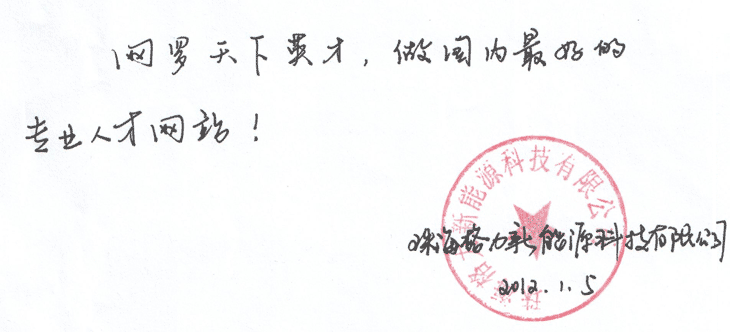 网罗天下英才，做国内最好的
专业人才网站！
珠海格力新能源科技有限公司
珠海格力新能源科技有限公司
2012.1.5